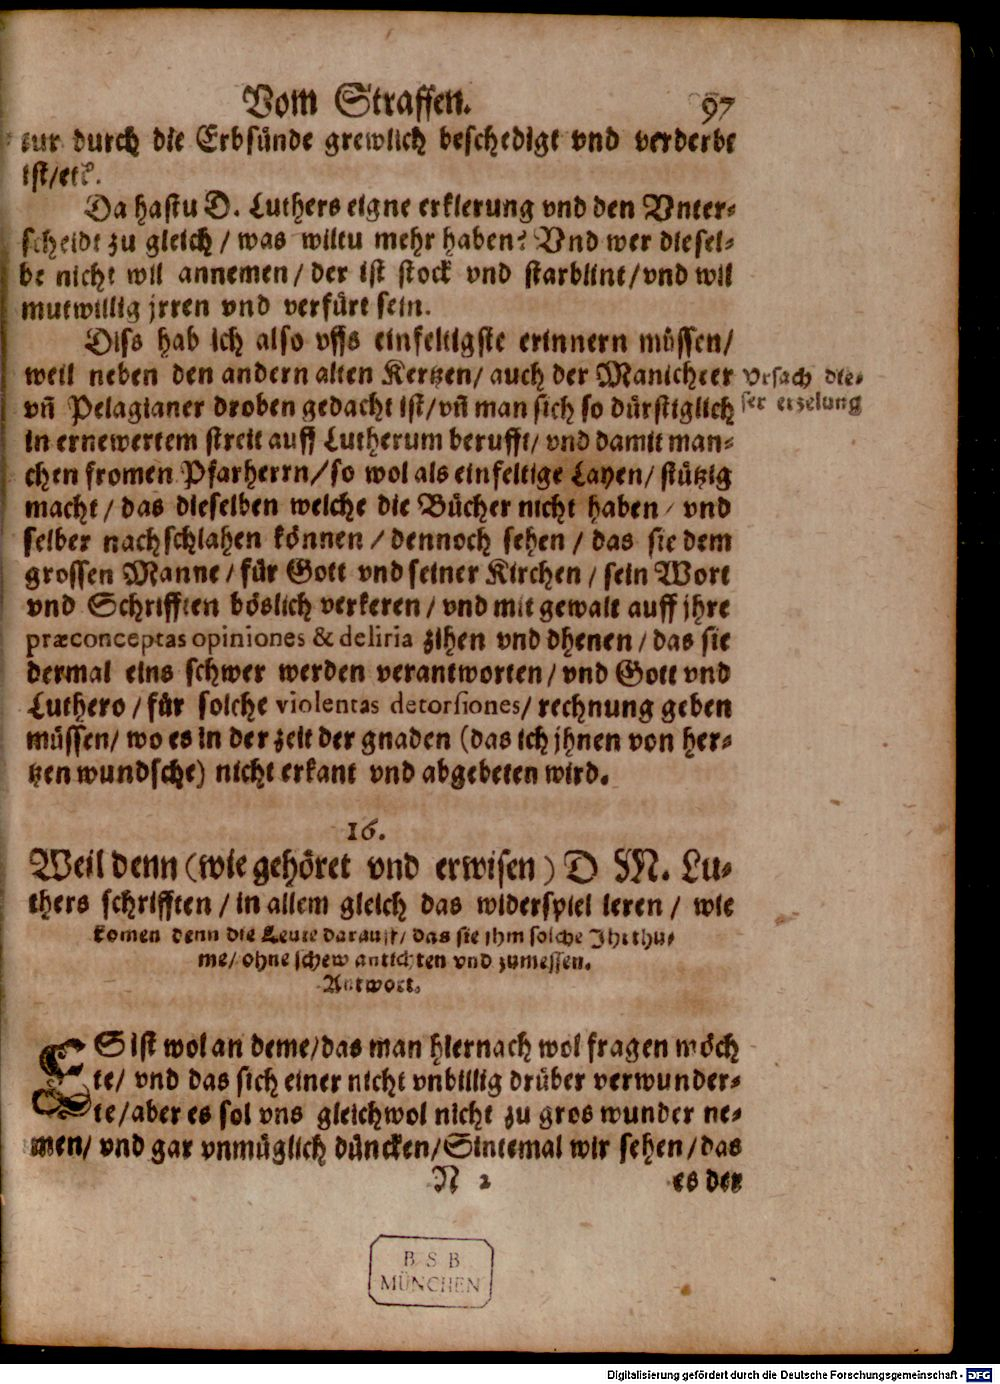 Vom Straffen. 97
tur durch die Erbsünde grewlich beschedigt vnd verderbt
ist/etc.
Da hastu D. Luthers eigne erklerung vnd den Vnter-
scheidt zu gleich / was wiltu mehr haben? Vnd wer diesel-
be nicht wil annemen / der ist stock vnd starblint / vnd wil
mutwillig jrren vnd verfürt sein.
Diss hab ich also vffs einfeltigste erinnern müssen /
weil neben den andern alten Kertzen / auch der Manicheer
Vrsach die-
ser erzelung
vñ Pelagianer droben gedacht ist / vñ man sich so dürstiglich
in ernewertem streit auff Lutherum berufft / vnd damit man-
chen fromen Pfarherrn / so wol als einfeltige Layen / stützig
macht / das dieselben welche die Bücher nicht haben / vnd
selber nachschlahen können / dennoch sehen / das sie dem
grossen Manne / für Gott vnd seiner Kirchen / sein Wort
vnd Schrifften böslich verkeren / vnd mit gewalt auff jhre
præconceptas opiniones & deliria zihen vnd dhenen / das sie
dermal eins schwer werden verantworten / vnd Gott vnd
Luthero / für solche violentas detorsiones / rechnung geben
müssen / wo es in der zeit der gnaden (das ich jhnen von her-
tzen wundsche) nicht erkant vnd abgebeten wird.
16.
Weil denn (wie gehöret vnd erwisen) D M. Lu-
thers schrifften / in allem gleich das widerspiel leren / wie
komen denn die Leute darauff / das sie jhm solche Jhrthu-
me / ohne schew antichten vnd zumessen.
Antwort.
ES ist wol an deme / das man hiernach wol fragen möch
te / vnd das sich einer nicht vnbillig drüber verwunder-
te / aber es sol vns gleichwol nicht zu gros wunder ne-
men / vnd gar vnmüglich düncken / Sintemal wir sehen / das
N 2 es der
B S B
MÜNCHEN
Digitalisierung gefördert durch die Deutsche Forschungsgemeinschaft - DFG